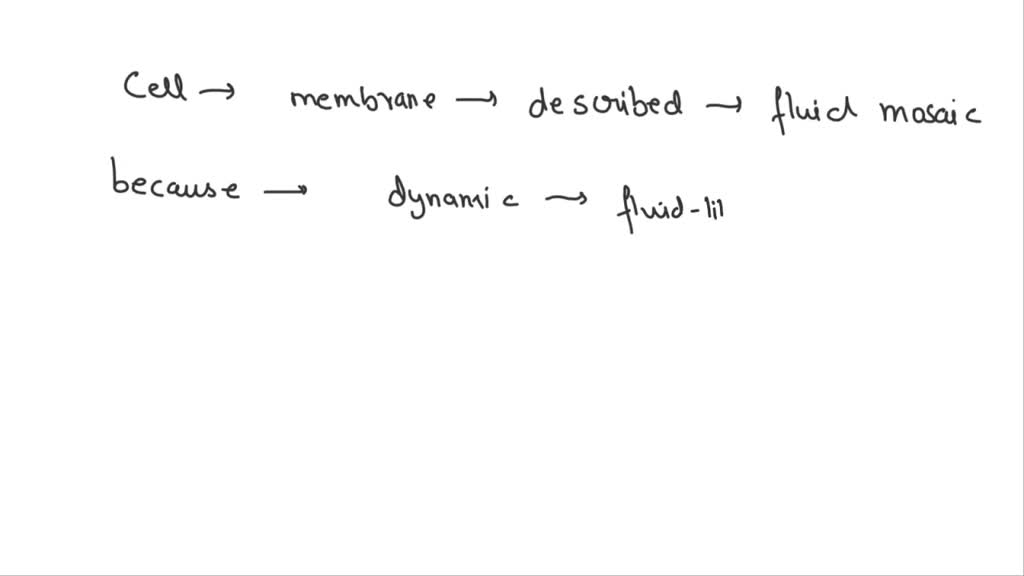 Cell → membrane → described → fluid mosaic
because → dynamic → fluid-lil